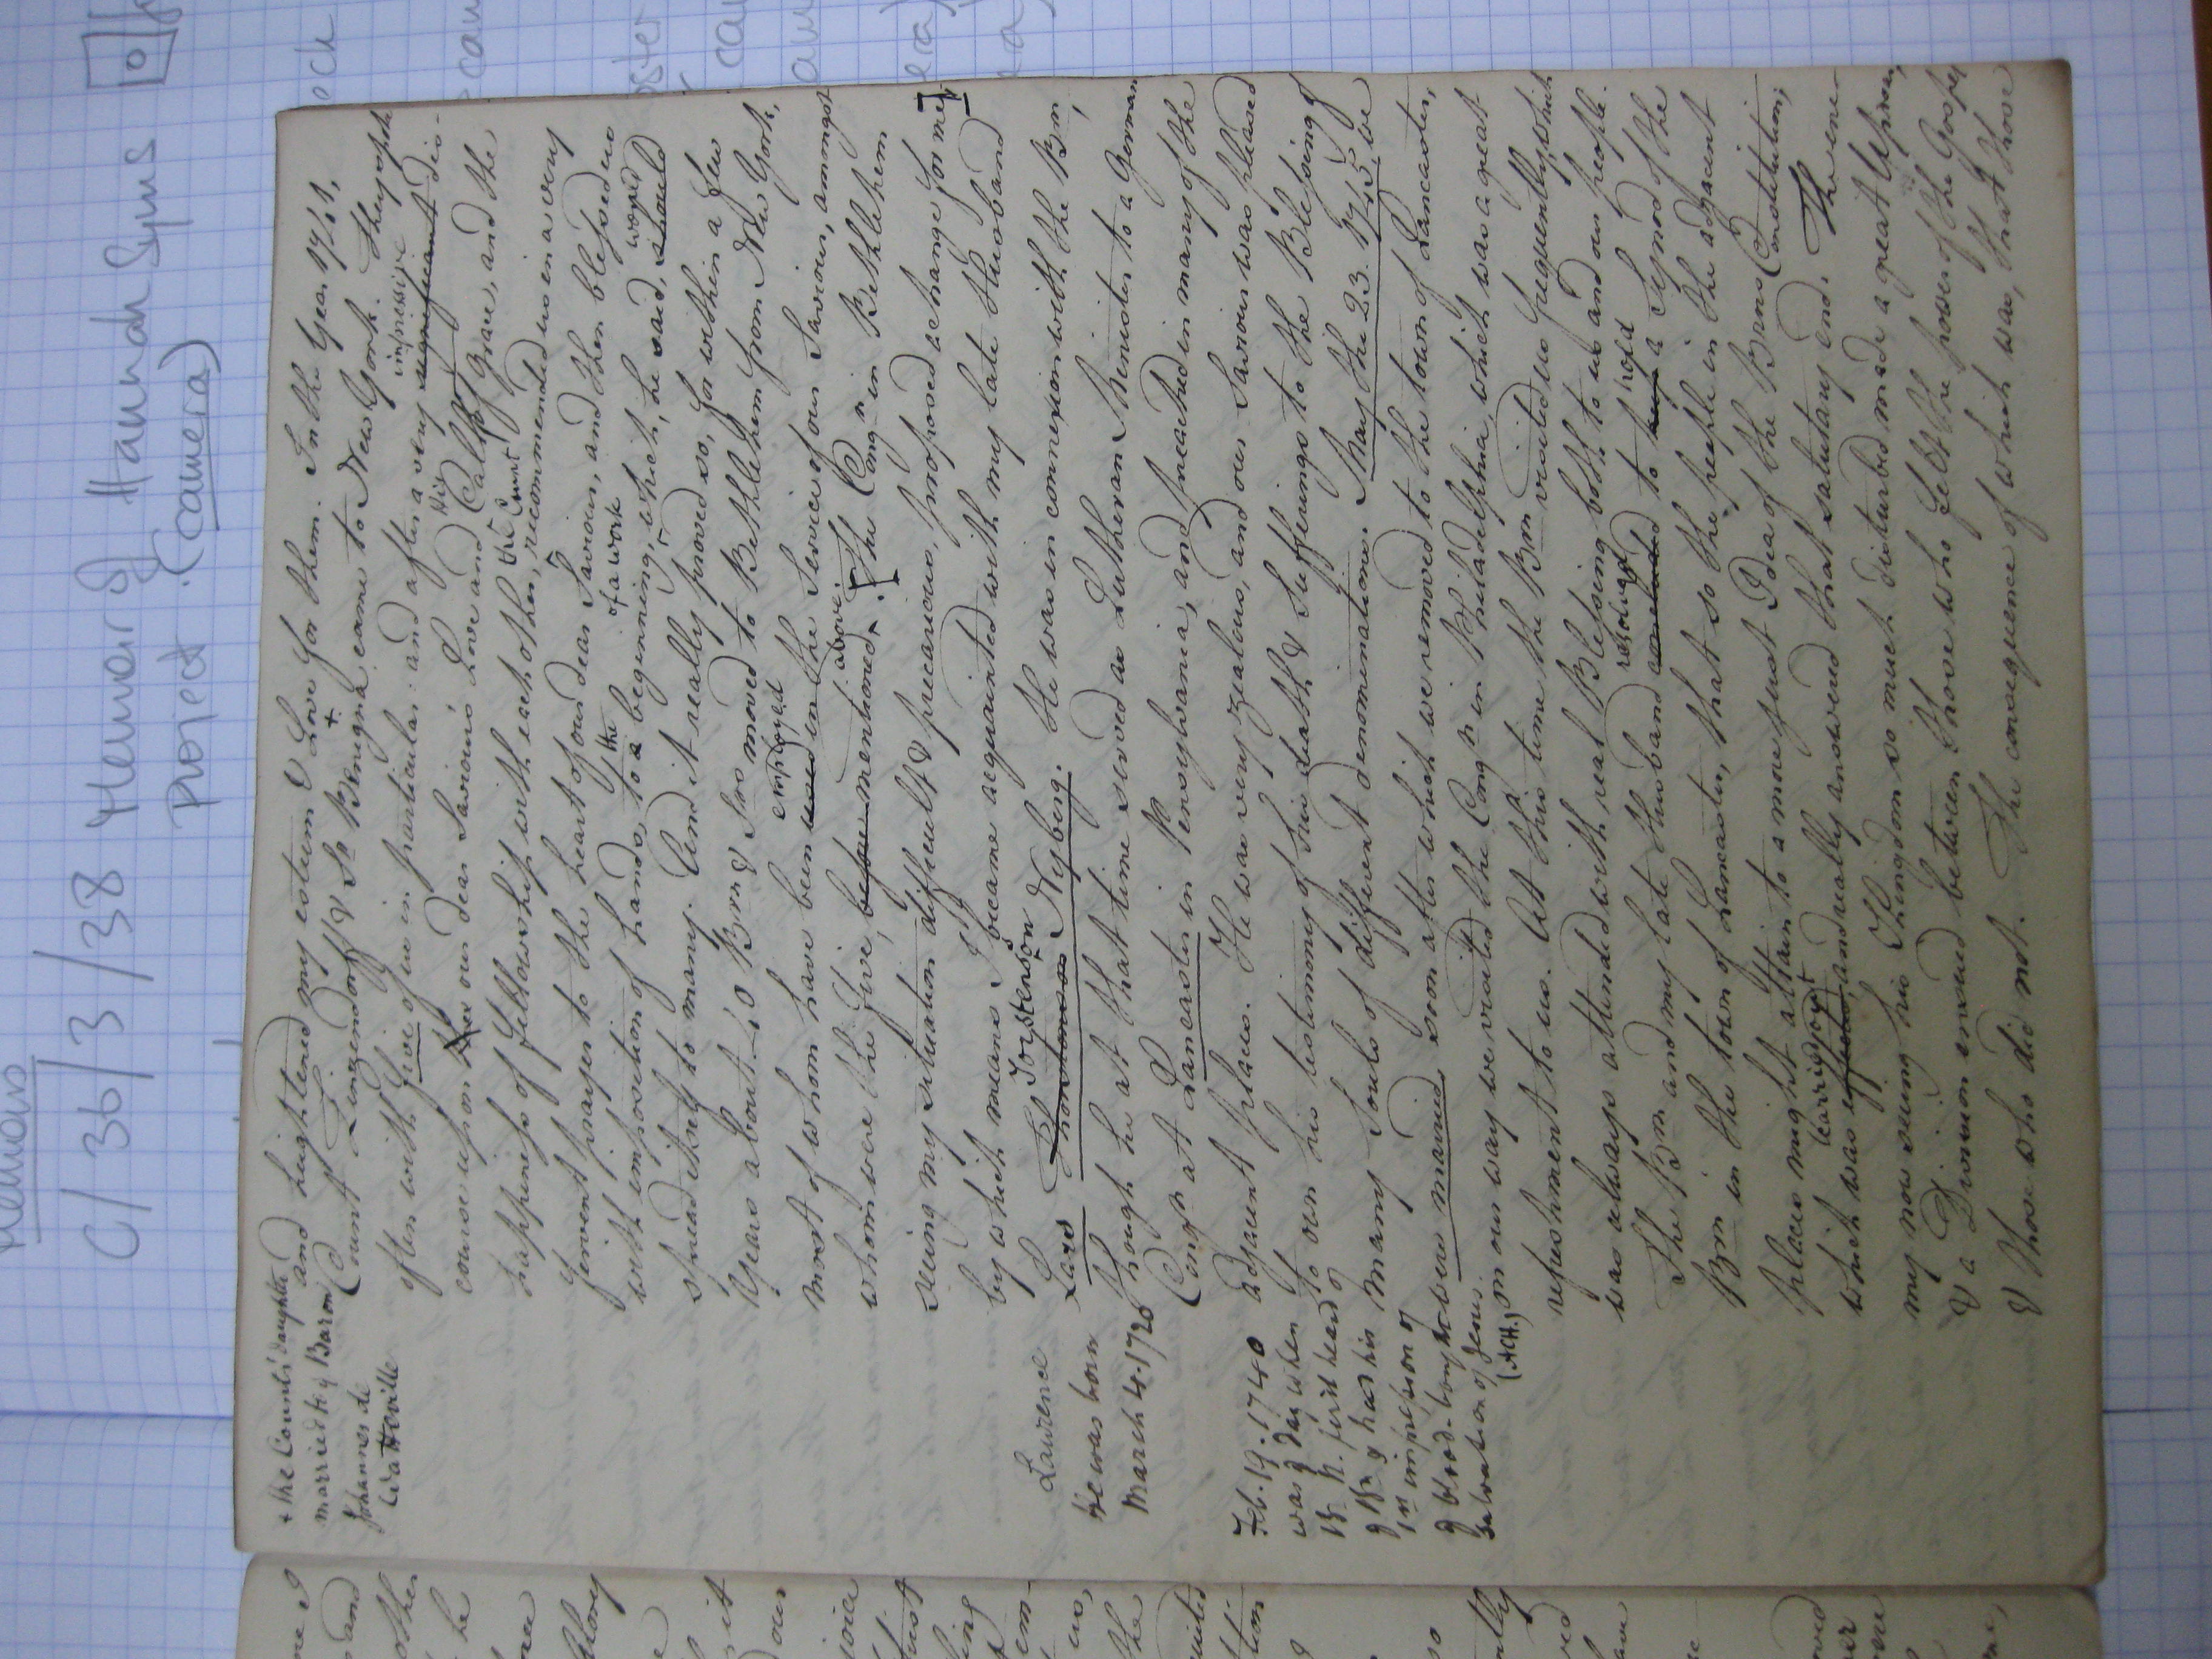 Memoirs
C/36/3/38 Memoir of Hannah Syms
Project (camera)
+ the Count's daughter
married to y Baron
Johannes de
Watteville
and heightened my esteem & Love for them. In the Year 1741,
Count Zinzendorff & Sr Benigna + came to New York. They spoke
often with five of us in particular: and after a very significant impressive dis-
course upon the our dear Saviour's Love and His Call of Grace, and the
happiness of fellowship with each other, the Count recommended us in a very
fervent prayer to the heart of our dear Saviour, and then blessed us
with imposition of hands, to a the beginning of a work, which, he said, should woued
spread itself to many. And it really proved so, for within a few
Years about 40 Brn & Srs moved to Bethlehem from New York,
most of whom have been used employed in the Service of our Saviour, amongst
whom were the five, before mentioned above. [The Congn in Bethlehem
seeing my situation difficult & precarious, proposed a change for me],
by which means I became acquainted with my late Husband
Lars Thorstenson Torstenson Nyberg. He was in connexion with the Brn,
though he at that time served as Lutheran Minister to a German
Congn at Lancaster in Pensylvania, and preached in many of the
adjacent places. He was very zealous, and our Saviour was pleased
to own his testimony of his death & Sufferings to the Blessing of
many Souls of different denominations. May the 23. 1745, we
were married, soon after which we removed to the town of Lancaster,
on our way we visited the Congn in Philadelphia, which was a great
refreshment to us. At this time the Brn visited us frequently, which
was always attended with real Blessing both to us and our people.
The Brn and my late Husband concluded resolved to keep hold a Synod of the
Brn in the town of Lancaster, that so the people in the adjacent
places might attain to a more just Idea of the Brns Constitution;
which was effected, carried out and really answered that salutary end. The ene-
my now seeing his Kingdom so much disturbed made a great Uproar,
& a Division ensued between those who felt the power of the Gospel
& those who did not. The consequence of which was, that those
Lawrence
He was born
March 4. 1720
Feb. 19. 1740
was y day when
Br. N. first heard of
y Brn & had his
1st impression of
y blood-bought
salvation of Jesus.
(ACH.)